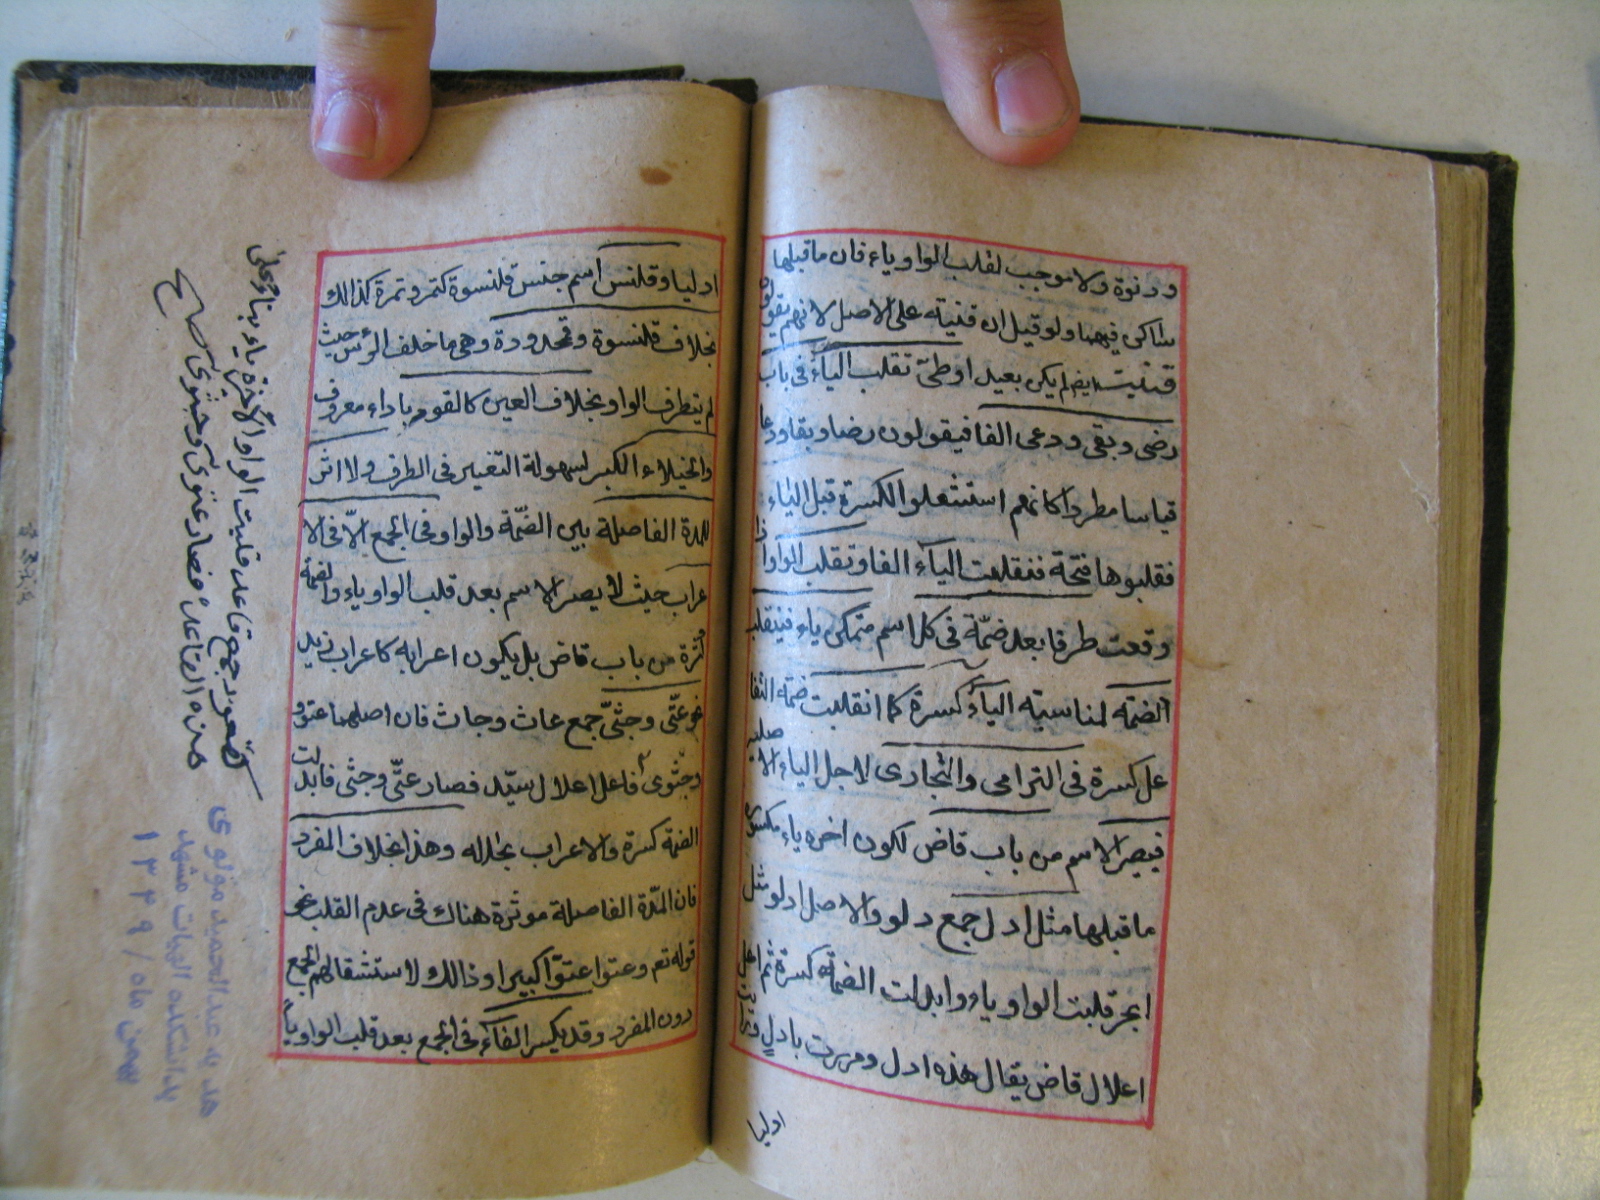 ودنوة ولا موجب لقلب الواو ياء فان ما قبلها
ساكن فيهما ولو قيل ان قنية على الاصل لانهم يقولون
قنيت ايضا لم يكن بعيدا وطئ تقلب الياء فى باب
رضى وبقى ودعى الفا فيقولون رضا وبقا ودعا
قياسا مطردا كانهم استثقلوا الكسرة قبل الياء
فقلبوها فتحة فنقلبت الياء الفا وتقلب الواو اذا
وقعت طرفا بعد ضمّة فى كل اسم متمكن ياء فينقلب
الضمّة لمناسبة الياء كسرة كما انقلبت ضمة التفا
عل كسرة فى الترامى والتجارى لاجل الياء الاصلية
فيصير الاسم من باب قاض لكون اخره ياء مكسورة
ما قبلها مثل ادل جمع دلو والاصل ادلو مثل
ابحر قلبت الواو ياء وابدلت الضمّة كسرة ثم اعل
اعلال قاض يقال هذه ادل ومررت بادلٍ ورايت
ادليا
ادليا وقلنس اسم جنس قلنسوة كتمر وتمرة كذالك
بخلاف قلنسوة وقمحدودة وهى ما خلف الرأس حيث
لم يتطرف الواو وبخلاف العين كالقوباء داء معروف
والخيلاء الكبر لسهولة التغيير فى الطرف ولا اثر
للمدة الفاصلة بين الضمّة والواو فى الجمع الّا فى الا
عراب حيث لا يصير الاسم بعد قلب الواو ياء والضمة
كسرة من باب قاض بل يكون اعرابه كاعراب زيد
نحو عتّى وجثىّ جمع عات وجاث فان اصلهما عتوو
وجثوى فاعل اعلال سيّد فصار عتّى وجثى فابدلت
الضمة كسرة والاعراب بحاله وهذا بخلاف المفرد
فان المدّة الفاصلة موثرة هناك فى عدم القلب نحو
قوله تعم وعتوا عتوّا كبيرا وذالك لاستثقالهم الجمع
دون المفرد وقد يكسر الفاء فى الجمع بعد قلب الواو ياً
قاعد قلبت الواو الآخرة ياء بناء على
هذه القاعدة فصار عتوى وجثوى صح
هديه عبدالحميد مولوى
بدانشكده الهيات مشهد
بهمن ماه / ١٣٣٩